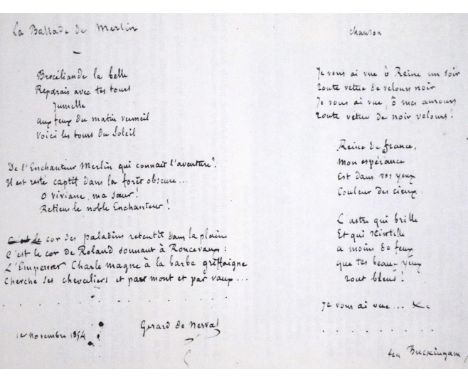 La Ballade de Merlin
Brocéliande la belle
Reparais avec tes tours
Jumelle
aux feux du matin vermeil
Voici les tours du Soleil
De l'Enchanteur Merlin qui connait l'aventure?
Il est resté captif dans la forêt obscure...
O Viviane, ma sœur!
Retiens le noble Enchanteur!
C'est le cor des paladins retentit dans la plaine
C'est le cor de Roland sonnant à Roncevaux:
L'Empereur Charlemagne à la barbe
Cherche ses chevaliers et par mont et par vaux...
1er Novembre 1854
Gerard de Nerval
Chanson
Je vous ai vue ô Reine un soir
Toute vetue de velours noir
Je vous ai vue, ô mes amours
Toute vetue de noir velours!
Reine de france,
Mon espérance
Est dans vos yeux
Couleur des cieux.
L'astre qui brille
Et qui scintille
a moins de feux
que tes beaux yeux
tout bleus!
Je vous ai vue...
Buckingam